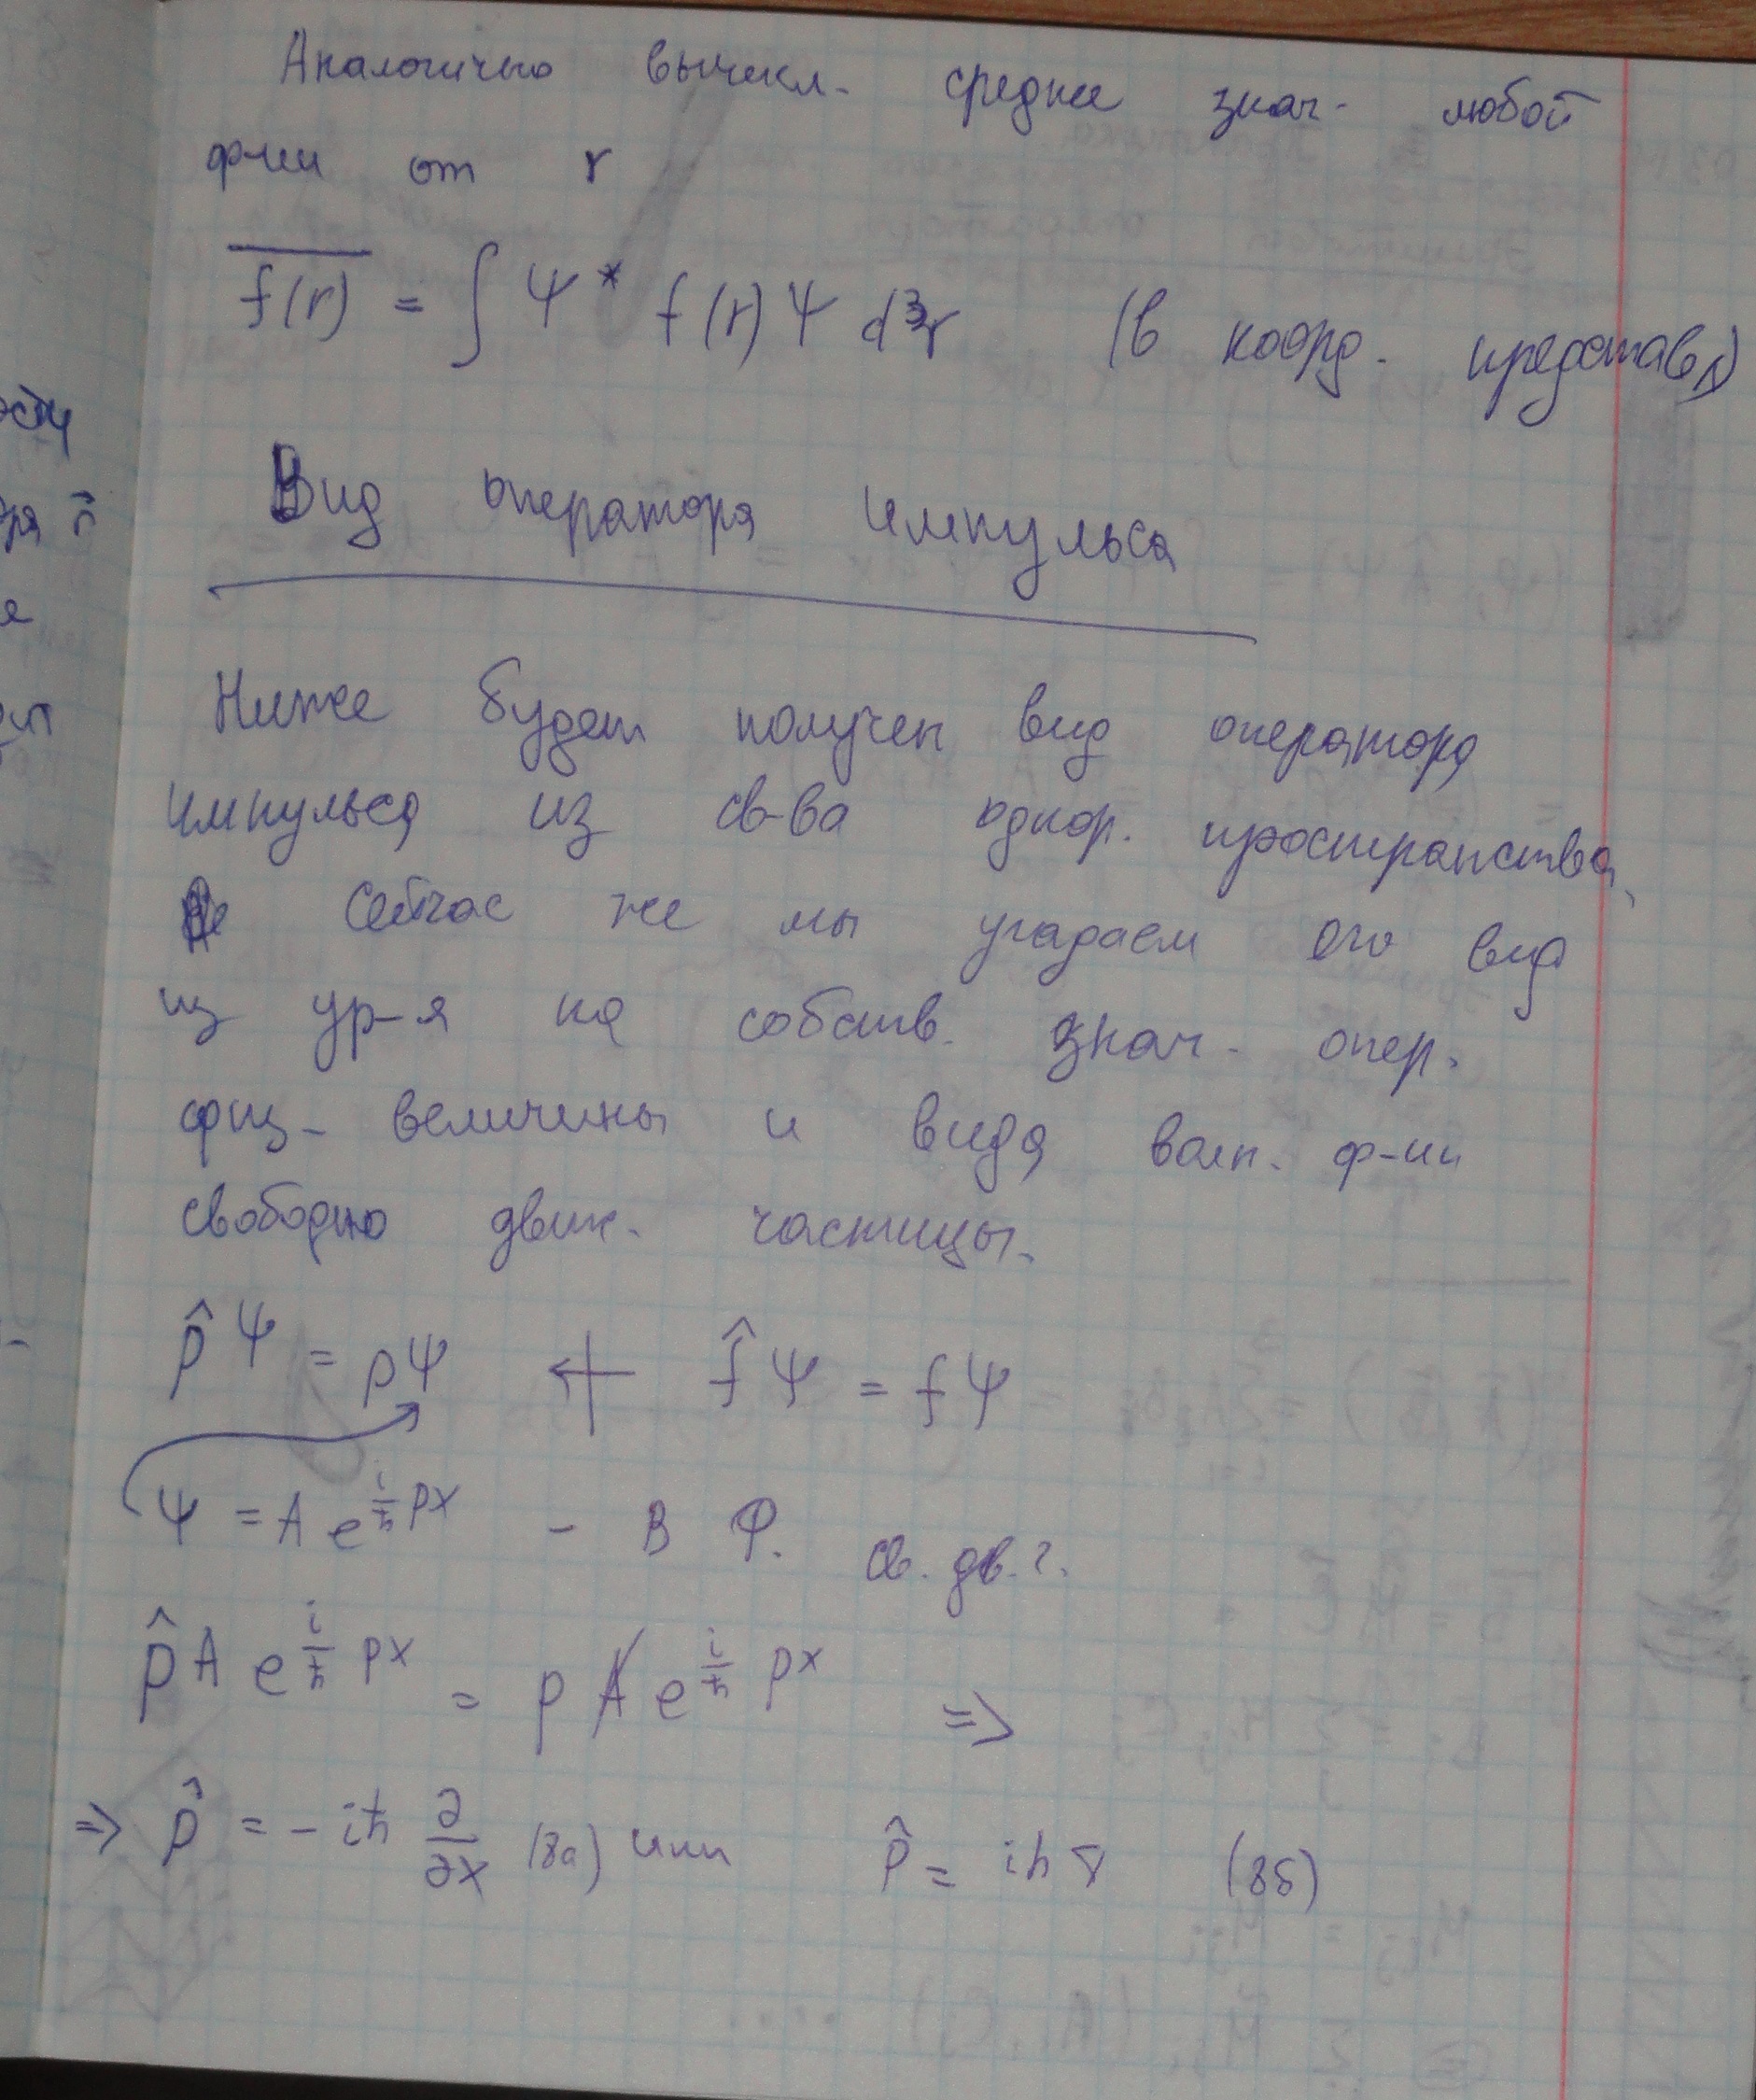 Аналогично вычисл. среднее знач. любой
ф-ии от r
f(r) = ∫ Ψ* f(r) Ψ d³r (в коорд. представл)
Вид оператора импульса
Ниже будет получен вид оператора
импульса из св-ва однор. пространства,
Сейчас же мы угадаем его вид
из ур-я на собств. знач. опер.
физ. величины и вида волн. ф-ии
свободно движ. частицы.
p̂Ψ = pΨ ← f̂Ψ = fΨ
Ψ = A e^{i/ħ px} - В Ф. св. дв. ч.
p̂ A e^{i/ħ px} = p A e^{i/ħ px} ⇒
⇒ p̂ = -iħ ∂/∂x (8а) или p̂ = iħ∇ (8б)